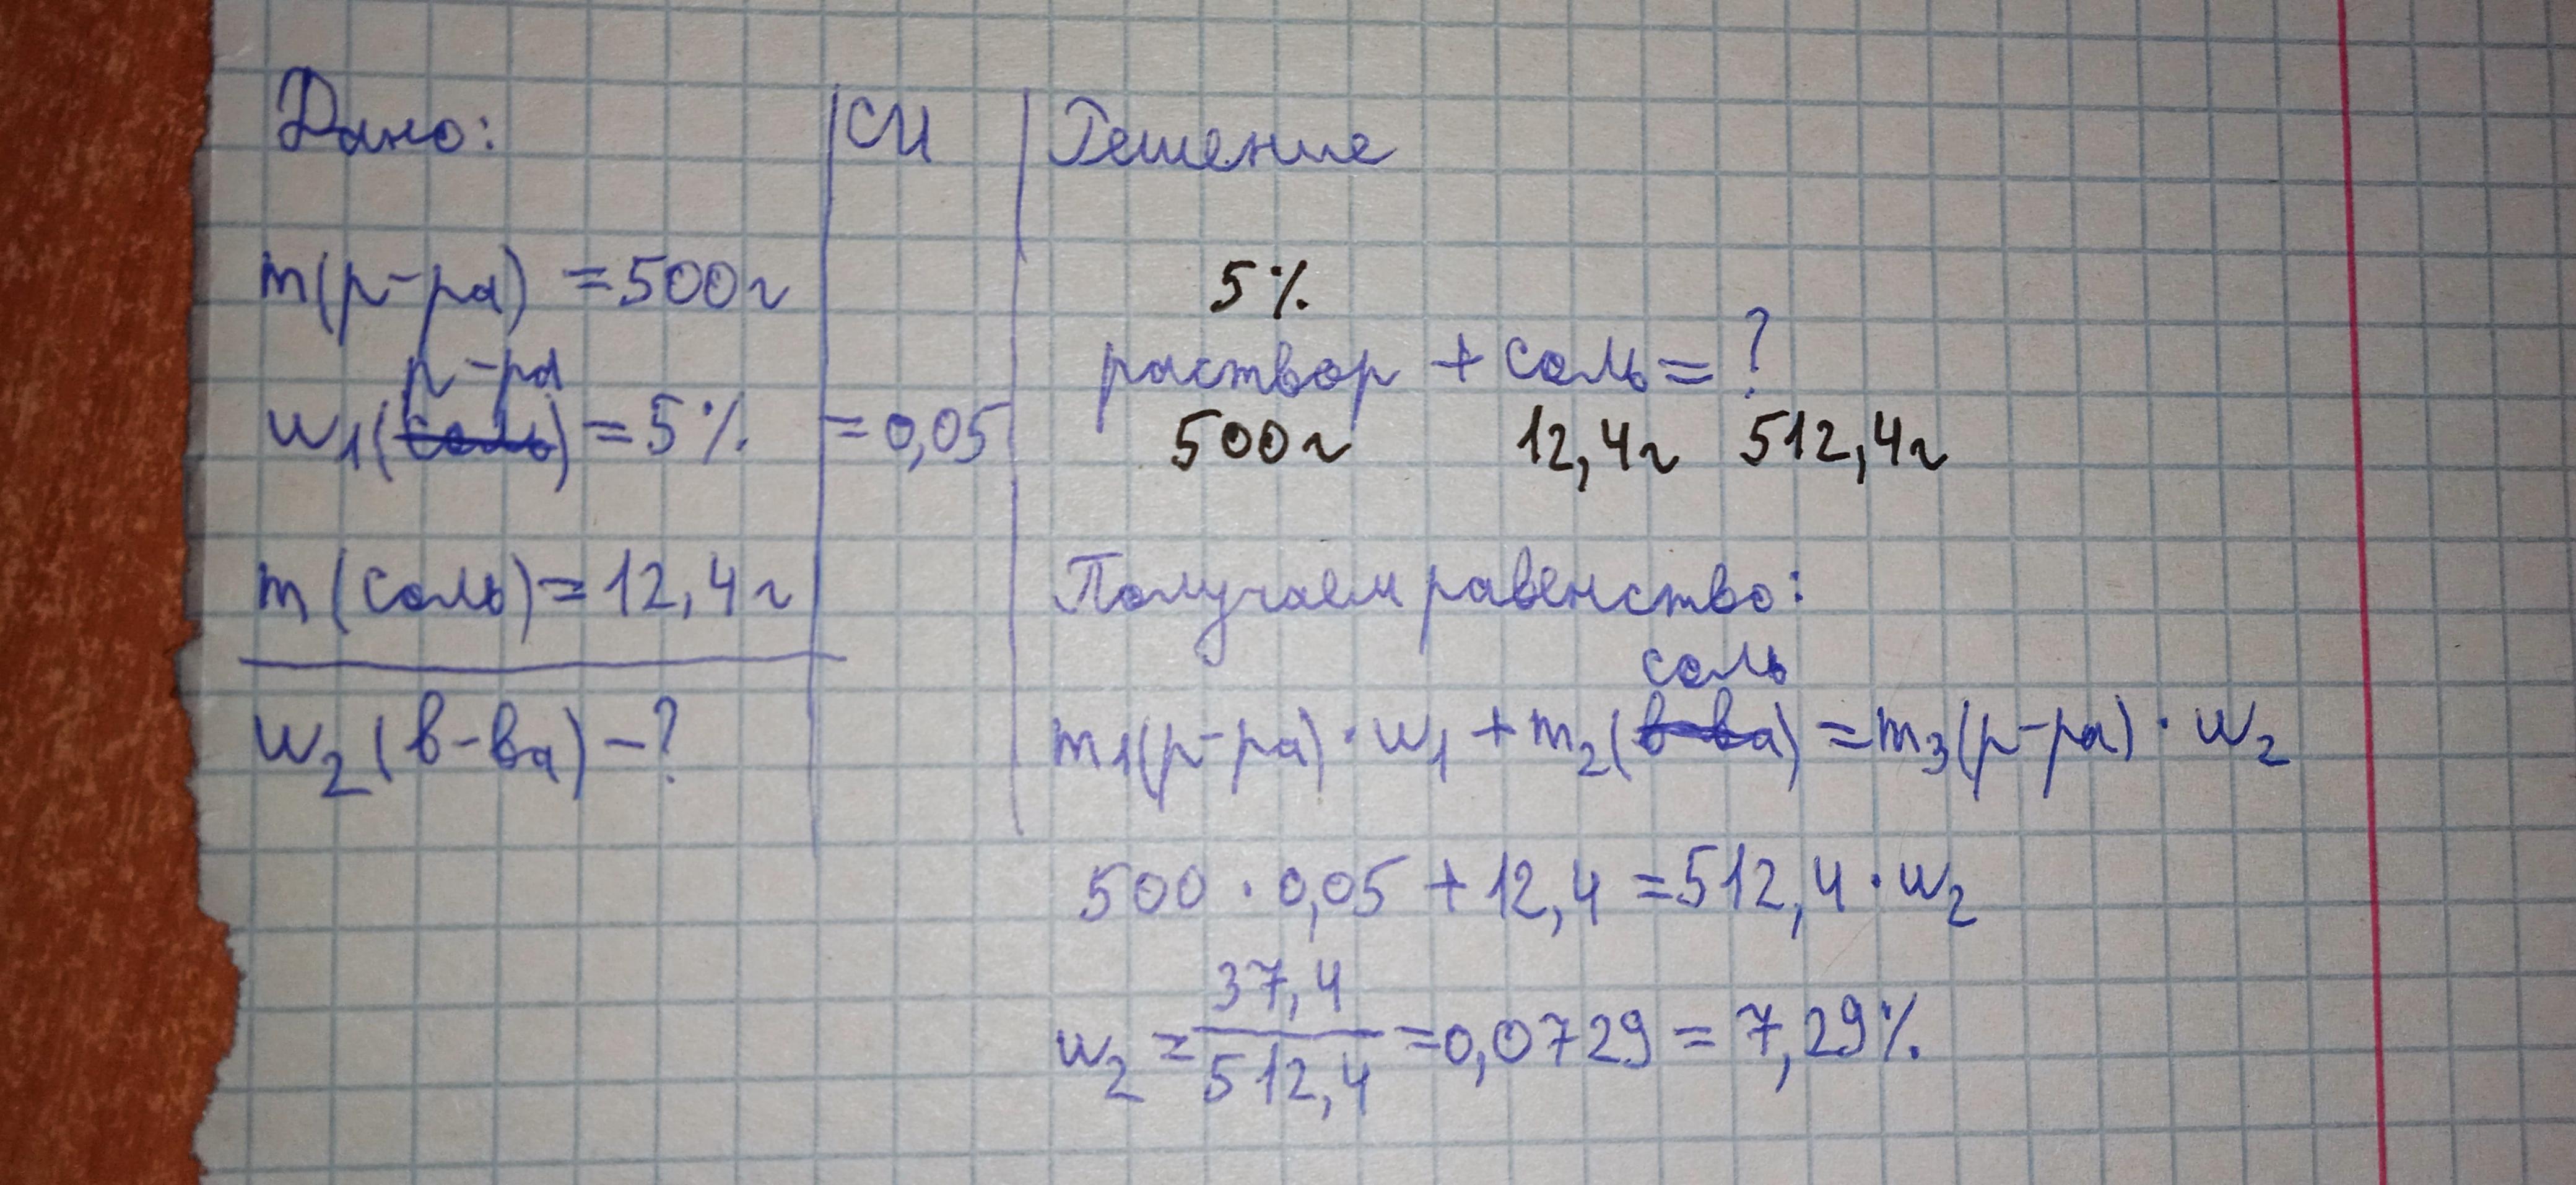 Дано:
СИ
Решение
m(р-ра) = 500г
р-ра
w1(соль) = 5%
= 0,05
m(соль) = 12,4г
w2(в-ва) - ?
5%
раствор + соль = ?
500г 12,4г 512,4г
Получаем равенство:
соль
m1(р-ра) · w1 + m2(в-ва) = m3(р-ра) · w2
500 · 0,05 + 12,4 = 512,4 · w2
w2 = 37,4 / 512,4 = 0,0729 = 7,29%